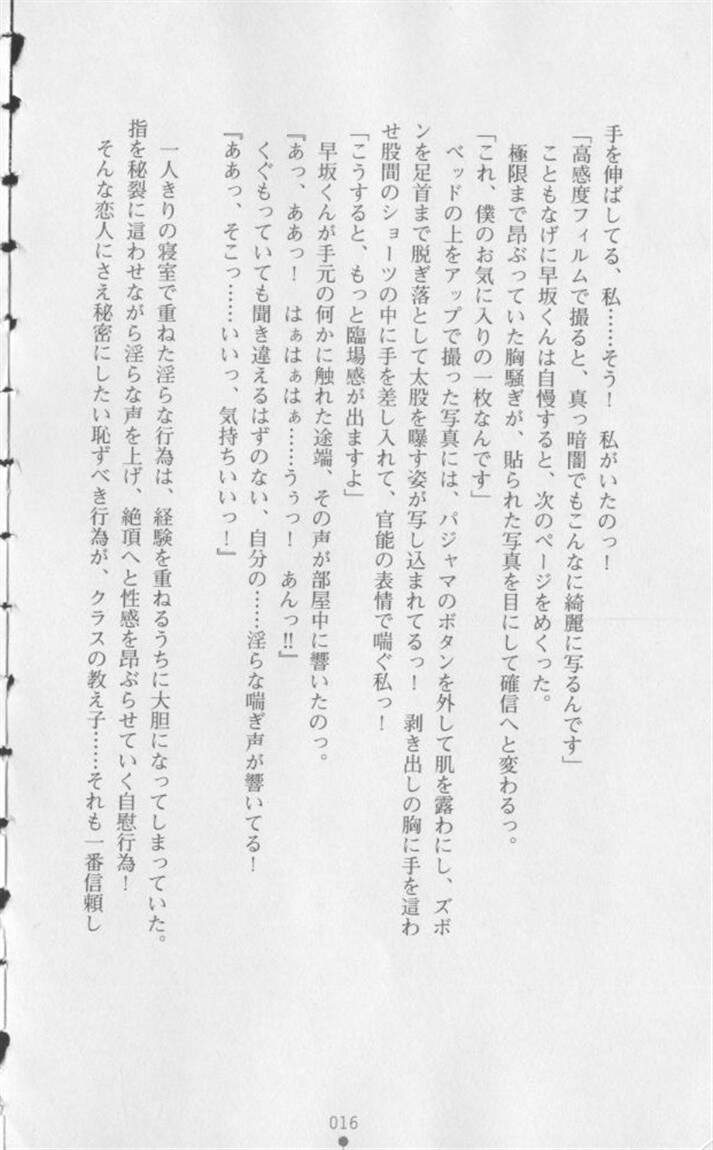 手を伸ばしてる、私……そう！　私がいたのっ！
「高感度フィルムで撮ると、真っ暗闇でもこんなに綺麗に写るんです」
こともなげに早坂くんは自慢すると、次のページをめくった。
極限まで昂ぶっていた胸騒ぎが、貼られた写真を目にして確信へと変わるっ。
「これ、僕のお気に入りの一枚なんです」
ベッドの上をアップで撮った写真には、パジャマのボタンを外して肌を露わにし、ズボ
ンを足首まで脱ぎ落として太股を曝す姿が写し込まれてるっ！　剥き出しの胸に手を這わ
せ股間のショーツの中に手を差し入れて、官能の表情で喘ぐ私っ！
「こうすると、もっと臨場感が出ますよ」
早坂くんが手元の何かに触れた途端、その声が部屋中に響いたのっ。
『あっ、ああっ！　はぁはぁはぁ……うぅっ！　あんっ!!』
くぐもっていても聞き違えるはずのない、自分の……淫らな喘ぎ声が響いてる！
『ああっ、そこっ……いいっ、気持ちいいっ！』
一人きりの寝室で重ねた淫らな行為は、経験を重ねるうちに大胆になってしまっていた。
指を秘裂に這わせながら淫らな声を上げ、絶頂へと性感を昂ぶらせていく自慰行為！
そんな恋人にさえ秘密にしたい恥ずべき行為が、クラスの教え子……それも一番信頼し
016